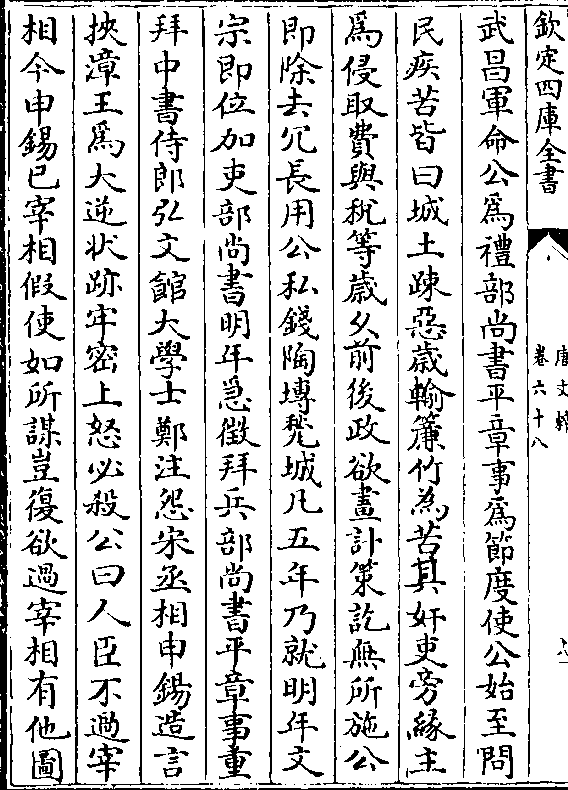 欽定四庫全書
卷六十八
武昌軍命公為禮部尚書平章事為節度使公始至問
民疾苦皆曰城土踈惡歳輸簾竹為苦其奸吏旁緣主
為侵取費與稅等歳乆前後政欲畫計策訖無所施公
即除去冗長用公私錢陶塼甃城凡五年乃就明年文
宗即位加吏部尚書明年急徵拜兵部尚書平章事重
拜中書侍郎弘文館大學士鄭注怨宋丞相申錫造言
挾漳王為大逆狀跡牢密上怒必殺公曰人臣不過宰
相今申錫已宰相假使如所謀豈復欲過宰相有他圖